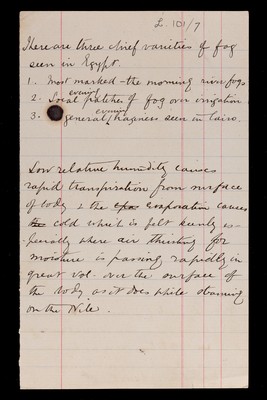 L. 101/7
There are three chief varieties of fog
seen in Egypt.
1. Most marked - the morning river fogs
2. Local evening patches of fog over irrigation
3. general evening haziness seen in Cairo.
Low relative humidity causes
rapid transpiration from surface
of body & the evaporation causes
the cold which is felt keenly es-
pecially where air thirsting for
moisture is passing rapidly in
great vol. over the surface of
the body as it does while steaming
on the Nile.